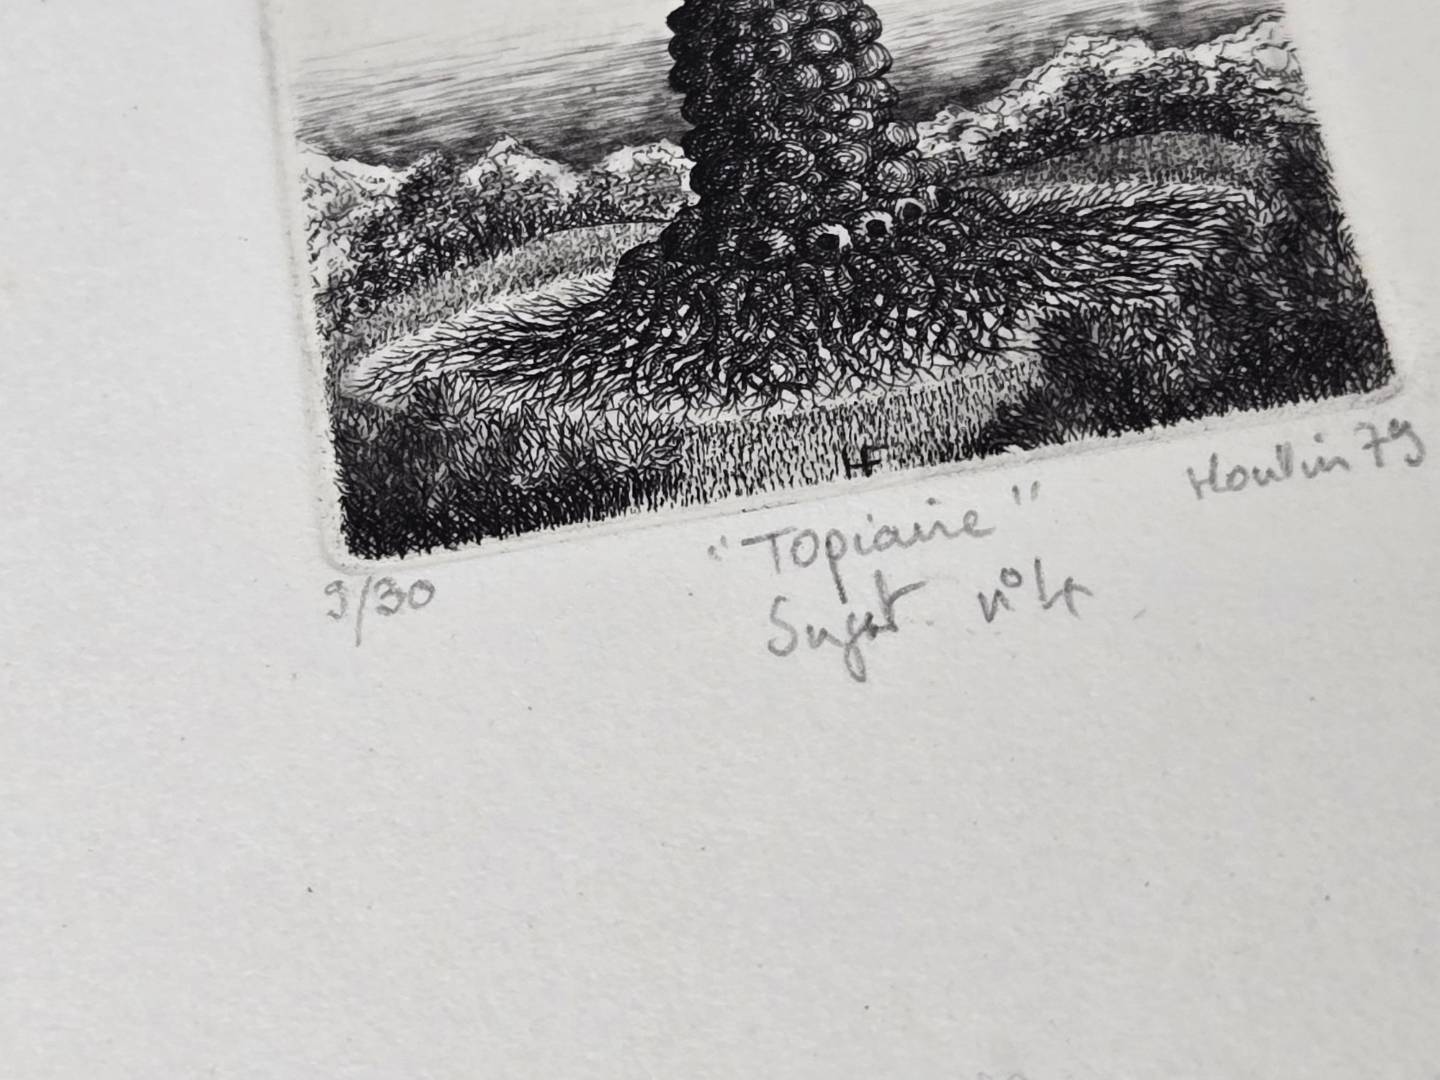 HF
9/30
"TOpiaire"
Sujet n°4
Houllin 79